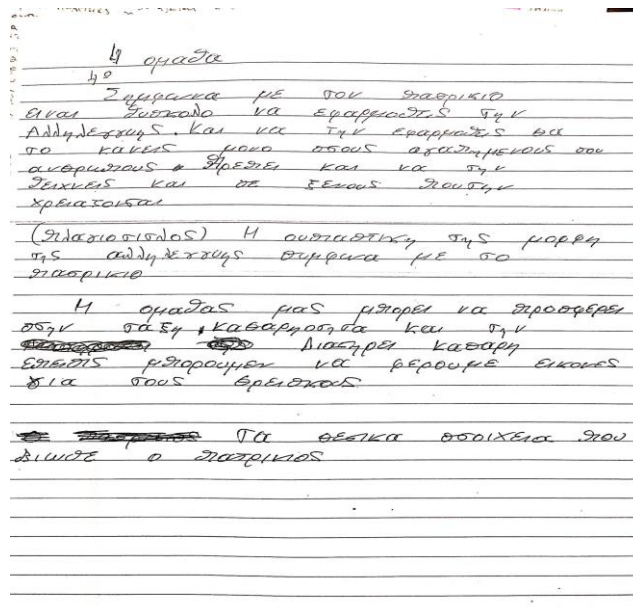 4 ομαδα
4⁰
Συμφωνα με τον πατρικιο
ειναι δυσκολο να εφαρμοζεις την
Αλληλεγγυης. Και να την εφαρμοζεις θα
το κανεις μονο στους αγαπημενους σου
ανθρωπους. Πρεπει και να την
δειχνεις και σε ξενους που την
χρειαζονται
(πλαγιοτιτλος) Η ουσιαστικη της μορφη
της αλληλεγγυης συμφωνα με το
πατρικιο
Η ομαδας μας μπορει να προσφερει
στην ταξη, καθαρηοτητα και την
Διατηρει καθαρη
Επεισης μπορουμεν να φερουμε εικονες
για τους
Τα θετικα στοιχεια που
βιωσε ο πατρικιος